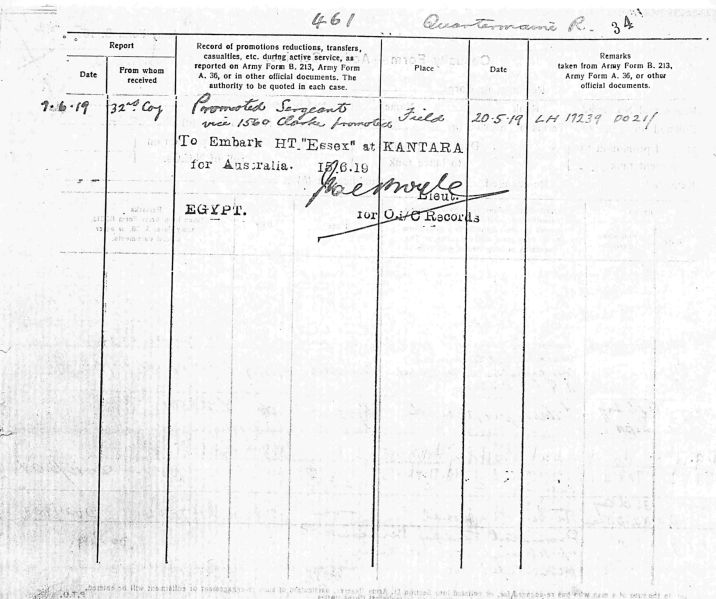 461 Quartermaine R. 34
Report
Date
From whom
received
Record of promotions reductions, transfers,
casualties, etc. during active service, as
reported on Army Form B. 213, Army Form
A. 36, or in other official documents. The
authority to be quoted in each case.
Place
Date
Remarks
taken from Army Form B. 213,
Army Form A. 36, or other
official documents.
9.6.19 32nd Coy Promoted Sergeant Field 20-5-19 LH 17239 DO21/
vice 1560 Clarke promoted
To Embark HT."Essex" at KANTARA
for Australia. 15/6.19
Lieut.
EGYPT. for O.i/C Records